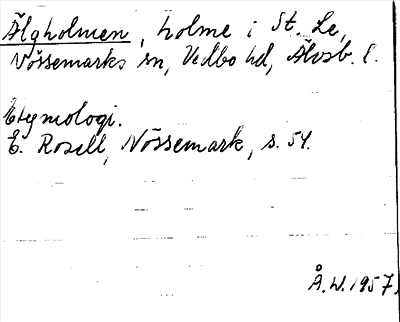 Älgholmen, holme i St. Le,
Nössemarks sn, Vedbo hd, Älvsb. l.
Etymologi.
E. Rosell, Nössemark, s. 54.
Å.W. 1957.